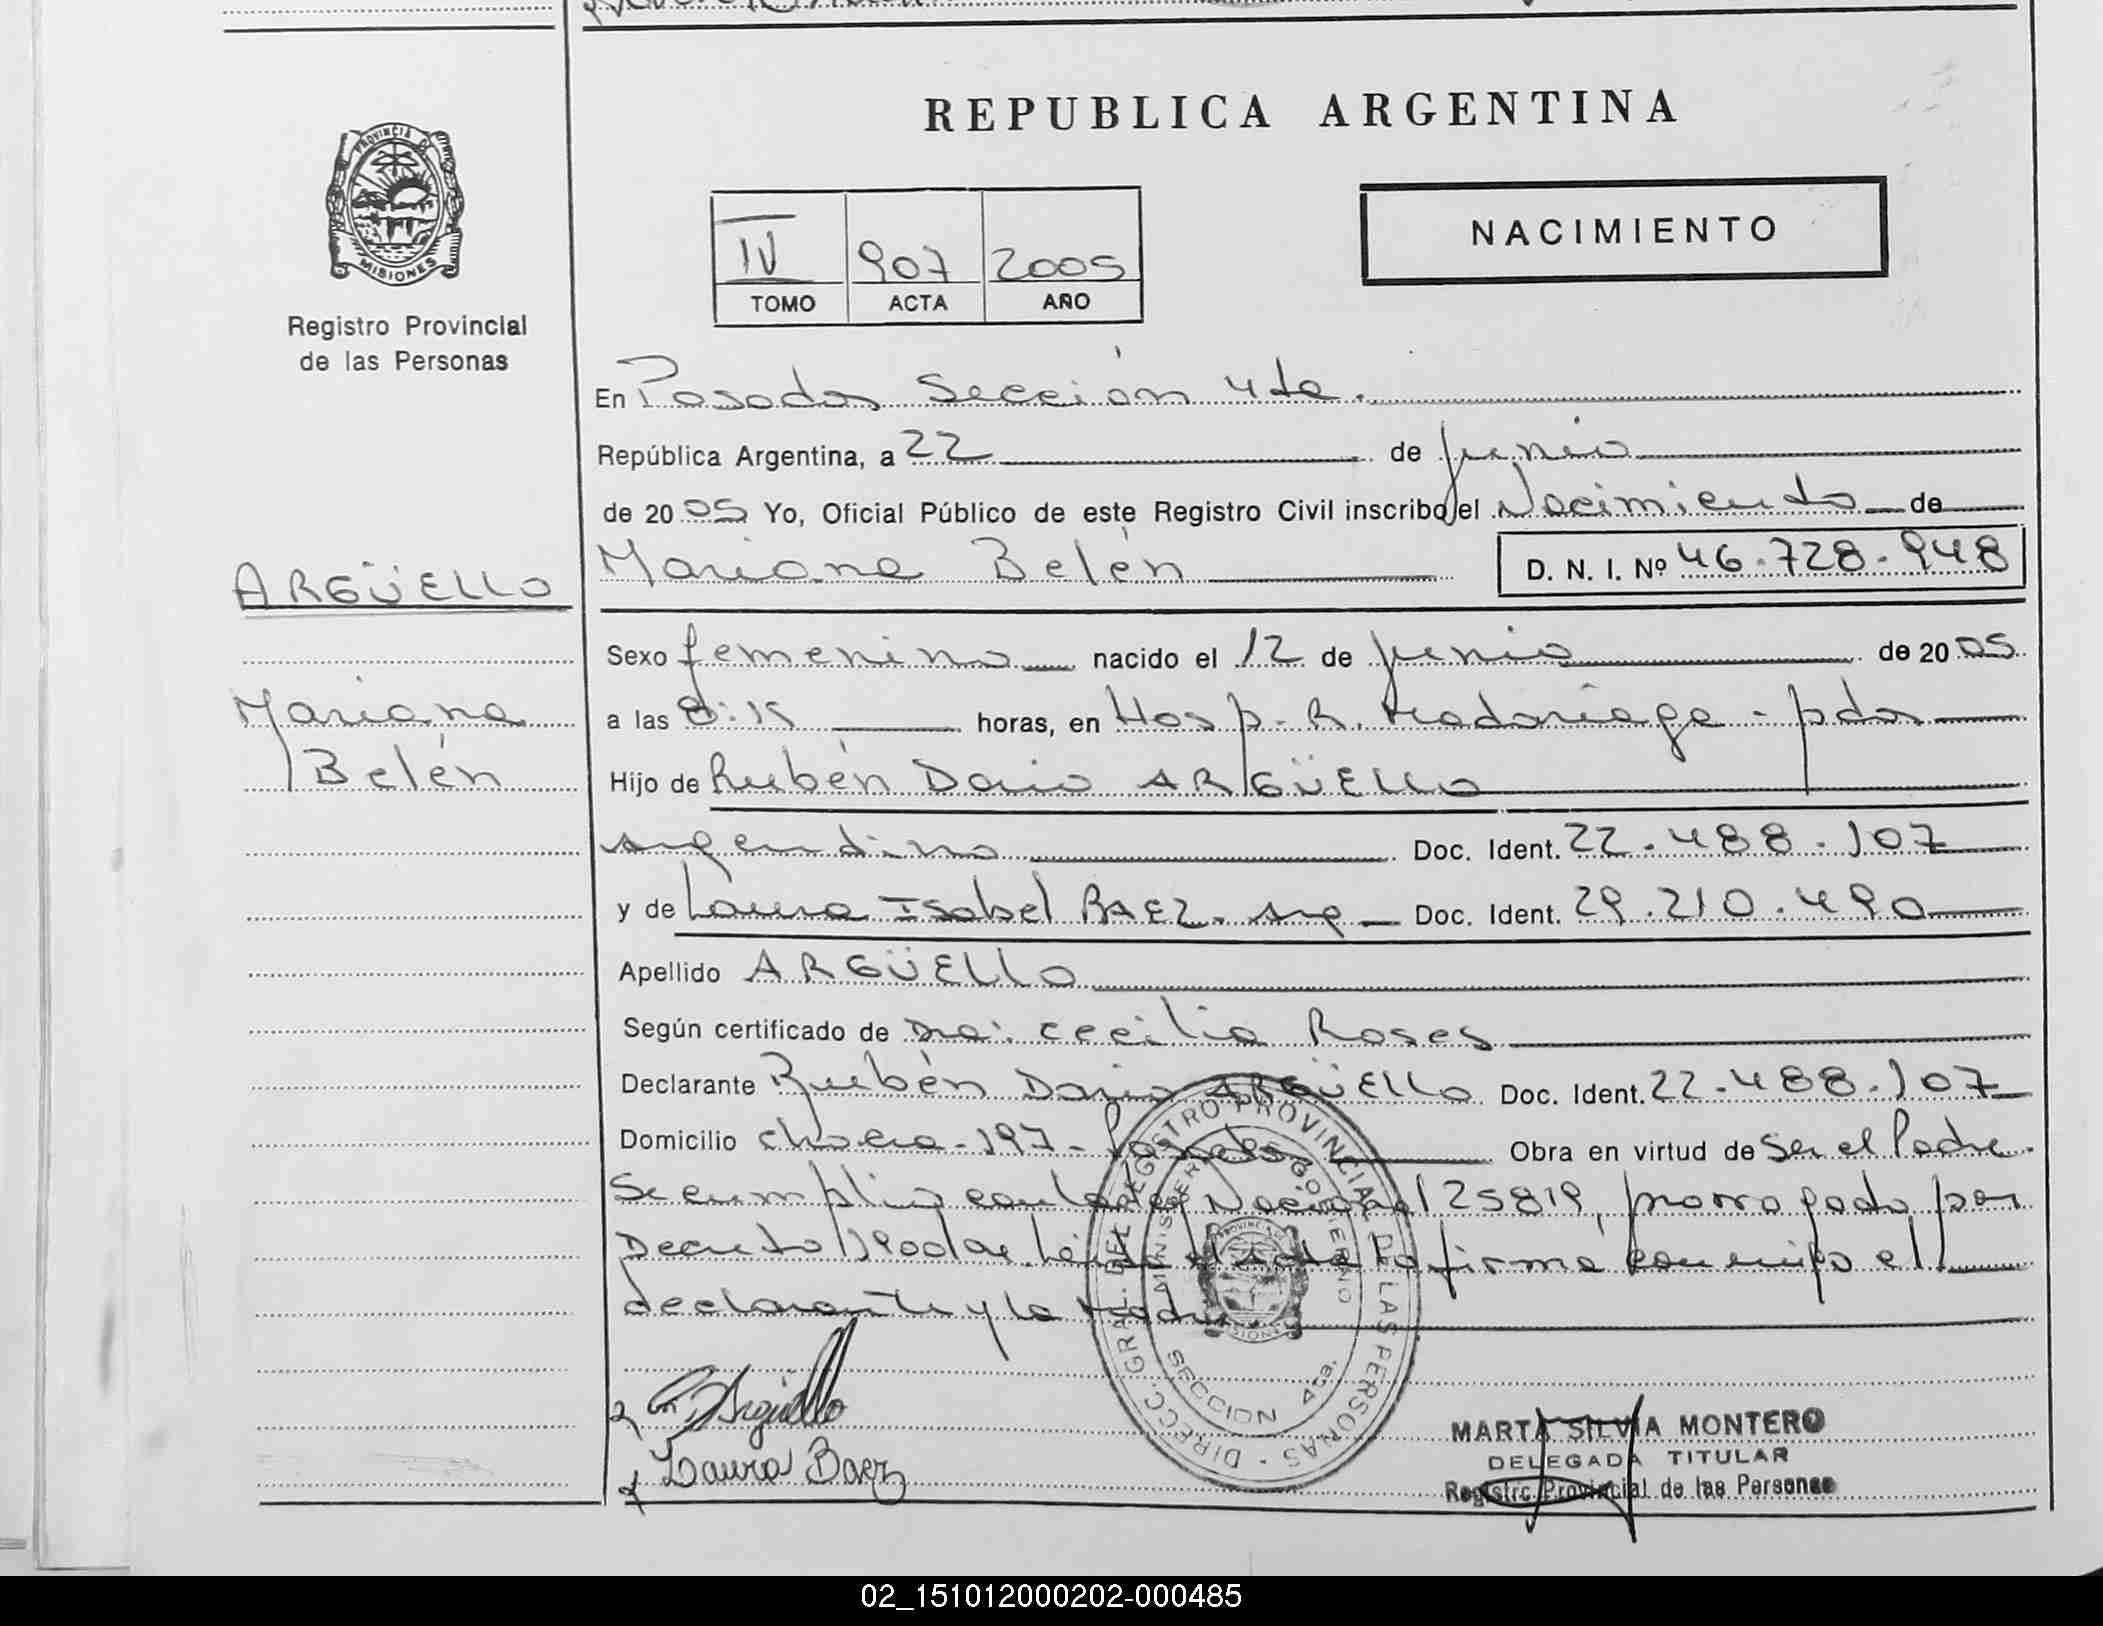 REPUBLICA ARGENTINA
PROVINCIA DE
MISIONES
Registro Provincial
de las Personas
IV 907 2005
TOMO ACTA AÑO
NACIMIENTO
En Posadas Sección 4ta.
República Argentina, a 22 de junio
de 2005 Yo, Oficial Público de este Registro Civil inscribo el Nacimiento de
ARGÜELLO
Mariana Belén
Mariana Belén D. N. I. Nº 46.728.948
Sexo femenino nacido el 12 de junio de 2005
a las 8:15 horas, en Hosp. R. Madariaga - pdas
Hijo de Rubén Dario ARGÜELLO
argentino Doc. Ident. 22.488.107
y de Laura Isabel BAEZ. arg Doc. Ident. 29.210.490
Apellido ARGÜELLO
Según certificado de Dra. Cecilia Roses
Declarante Rubén Dario ARGÜELLO Doc. Ident. 22.488.107
Domicilio 197 - Posadas Obra en virtud de Ser el Padre.
Se cumplio con la Ley Nacional 25819, prorrogado por
Decreto Leída el Acta la firma conmigo el
declarante y la madre
R Argüello
Laura Baez
DIRECC. GRAL. DEL REGISTRO PROVINCIAL DE LAS PERSONAS
MINISTERIO GOBIERNO
SECCION 4ta.
MARTA SILVIA MONTERO
DELEGADA TITULAR
Registro Provincial de las Personas
02_151012000202-000485